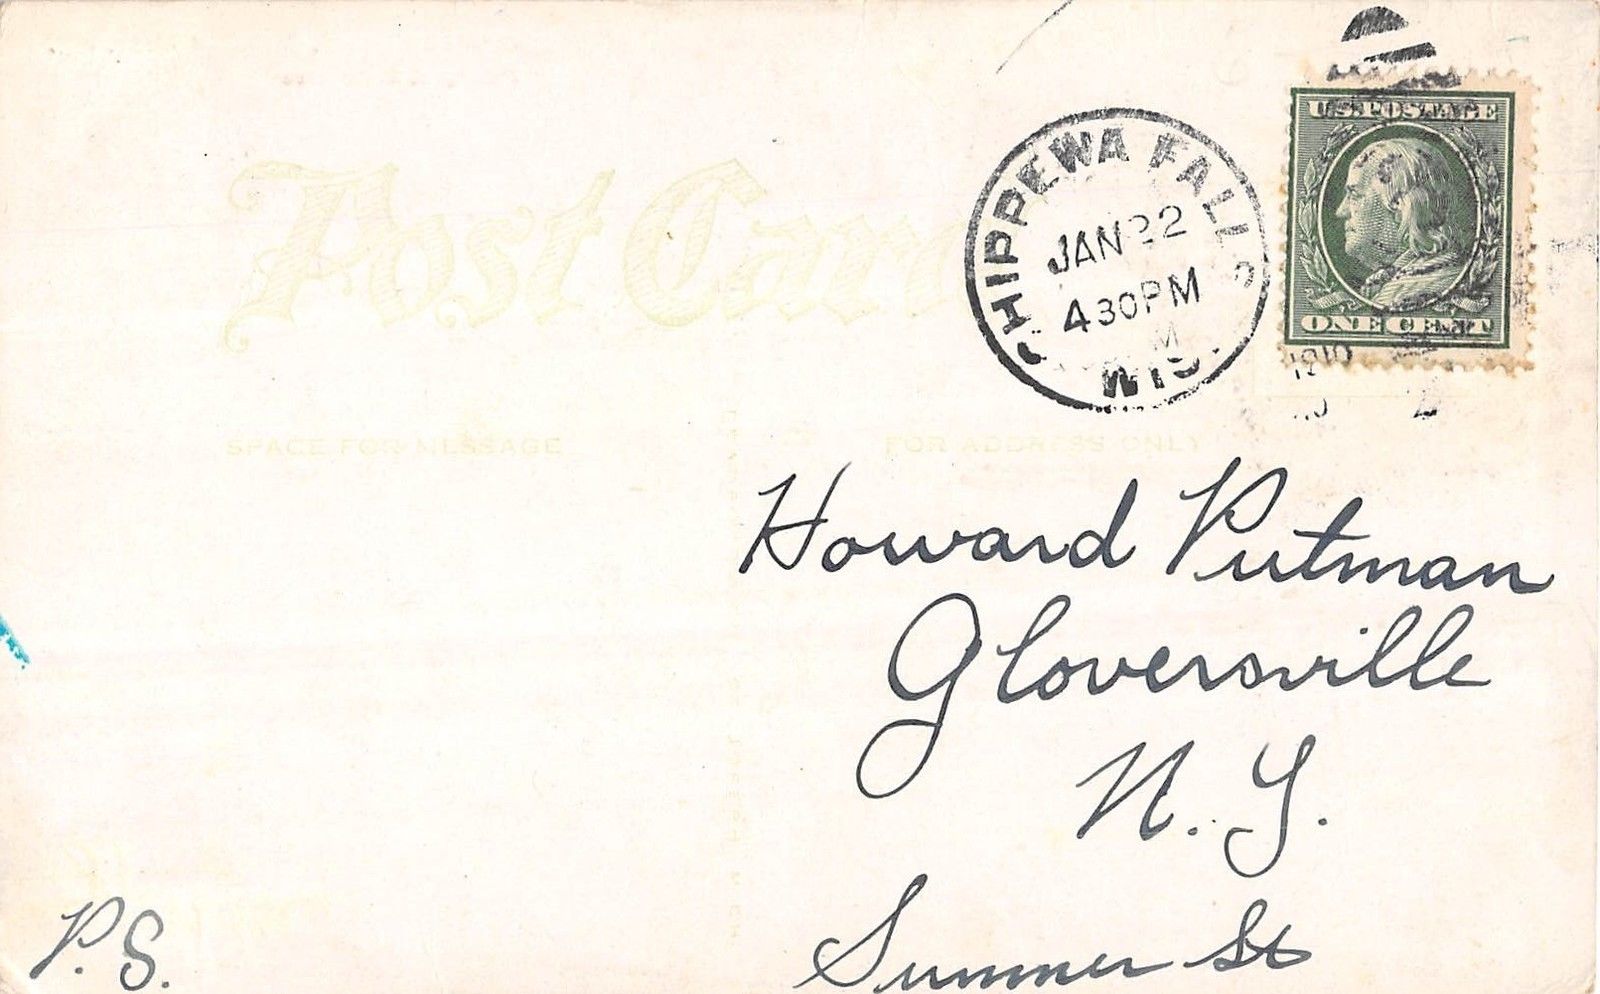 Post Card
CHIPPEWA FALLS
JAN 22
430PM
M
WIS.
U.S. POSTAGE
ONE CENT
1910
SPACE FOR MESSAGE
FOR ADDRESS ONLY
Howard Putman
Gloversville
N. Y.
Summer St
P.S.